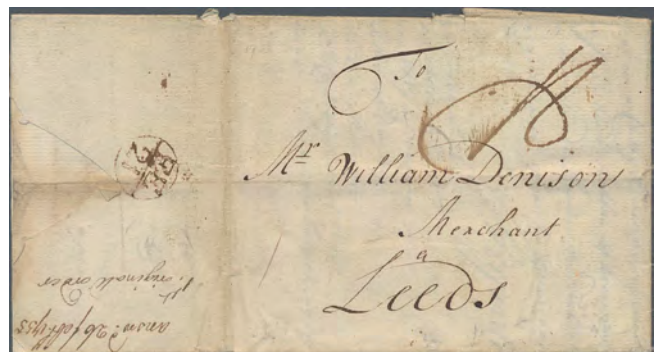 To
Mr William Denison
Merchant
a
Leeds
original order